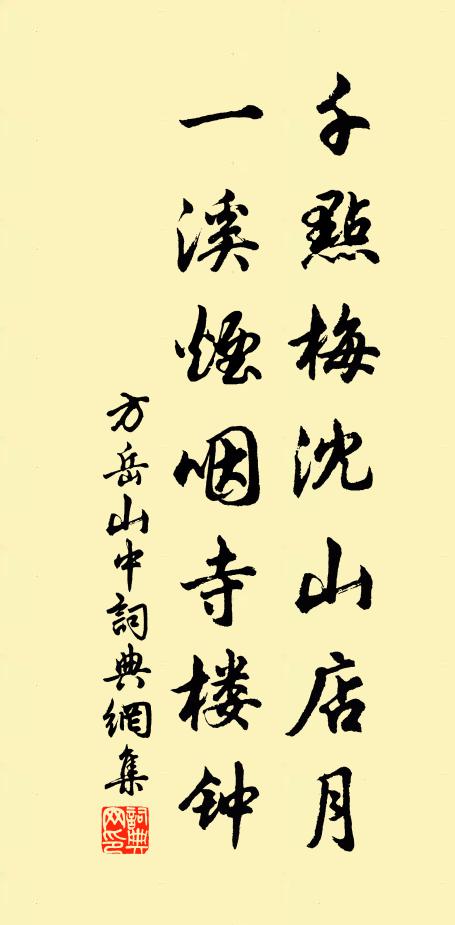 千點梅沈山店月
一溪煙咽寺楼钟
方岳山中詞典網集
詞典网印